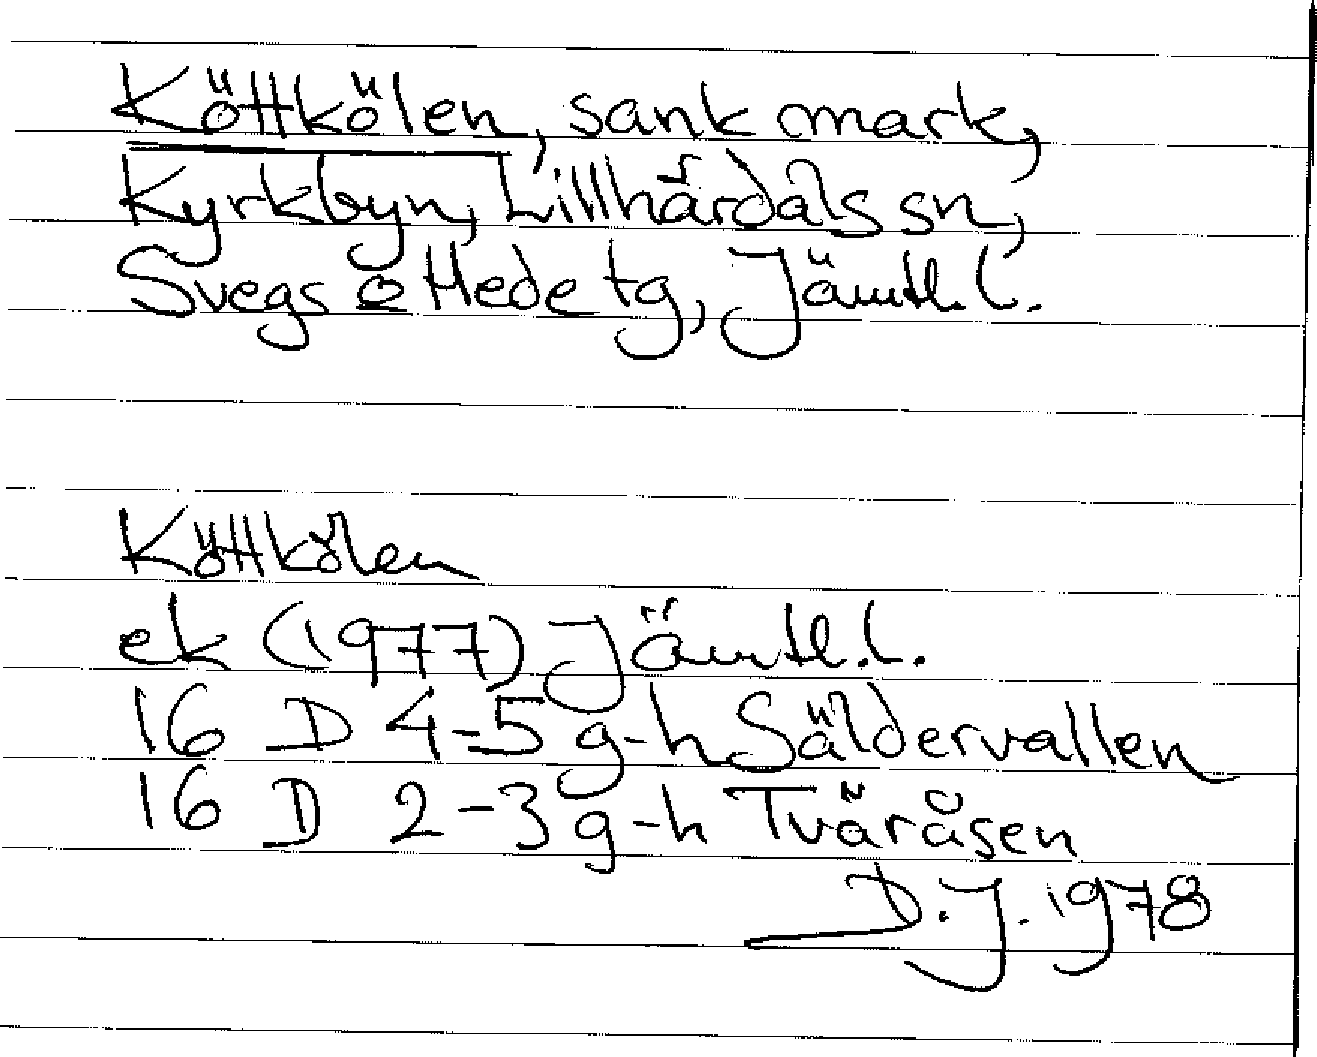 Köttkölen, sank mark,
Kyrkbyn, Lillhärdals sn,
Svegs o Hede tg, Jämtl. l.
Köttkölen
ek (1977) Jämtl. l.
16 D 4-5 g-h Säldervallen
16 D 2-3 g-h Tväråsen
D.J. 1978